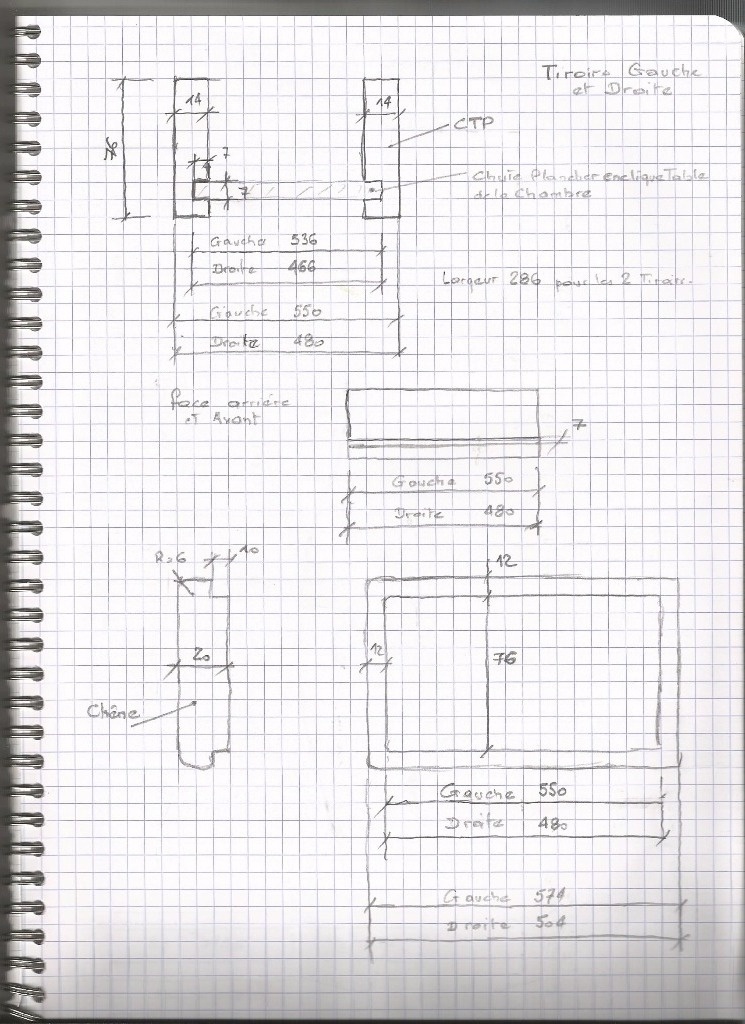 Tiroire Gauche
et Droite
14
14
76
CTP
7
7
Chute Plancher encliqueTable
de la Chambre
Gauche 536
Droite 466
Largeur 286 pour les 2 Tiroirs.
Gauche 550
Droite 480
face arrière
et Avant
7
Gauche 550
Droite 480
R=6
10
12
20
12
76
Chêne
Gauche 550
Droite 480
Gauche 574
Droite 504